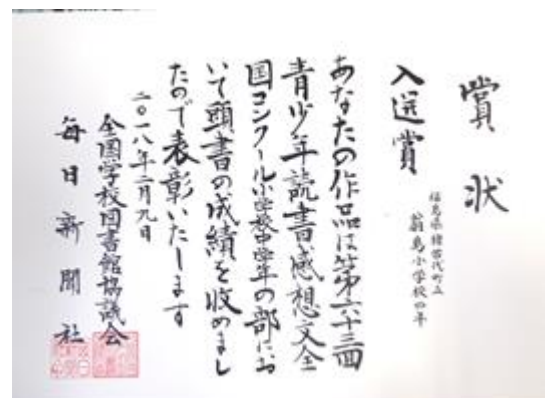 賞状
入選賞
福島県猪苗代町立
翁島小学校四年
あなたの作品は第六十三回
青少年読書感想文全
国コンクール小学校中学年の部にお
いて頭書の成績を収めまし
たので表彰いたします
二〇一八年二月九日
全国学校図書館協議会
毎日新聞社